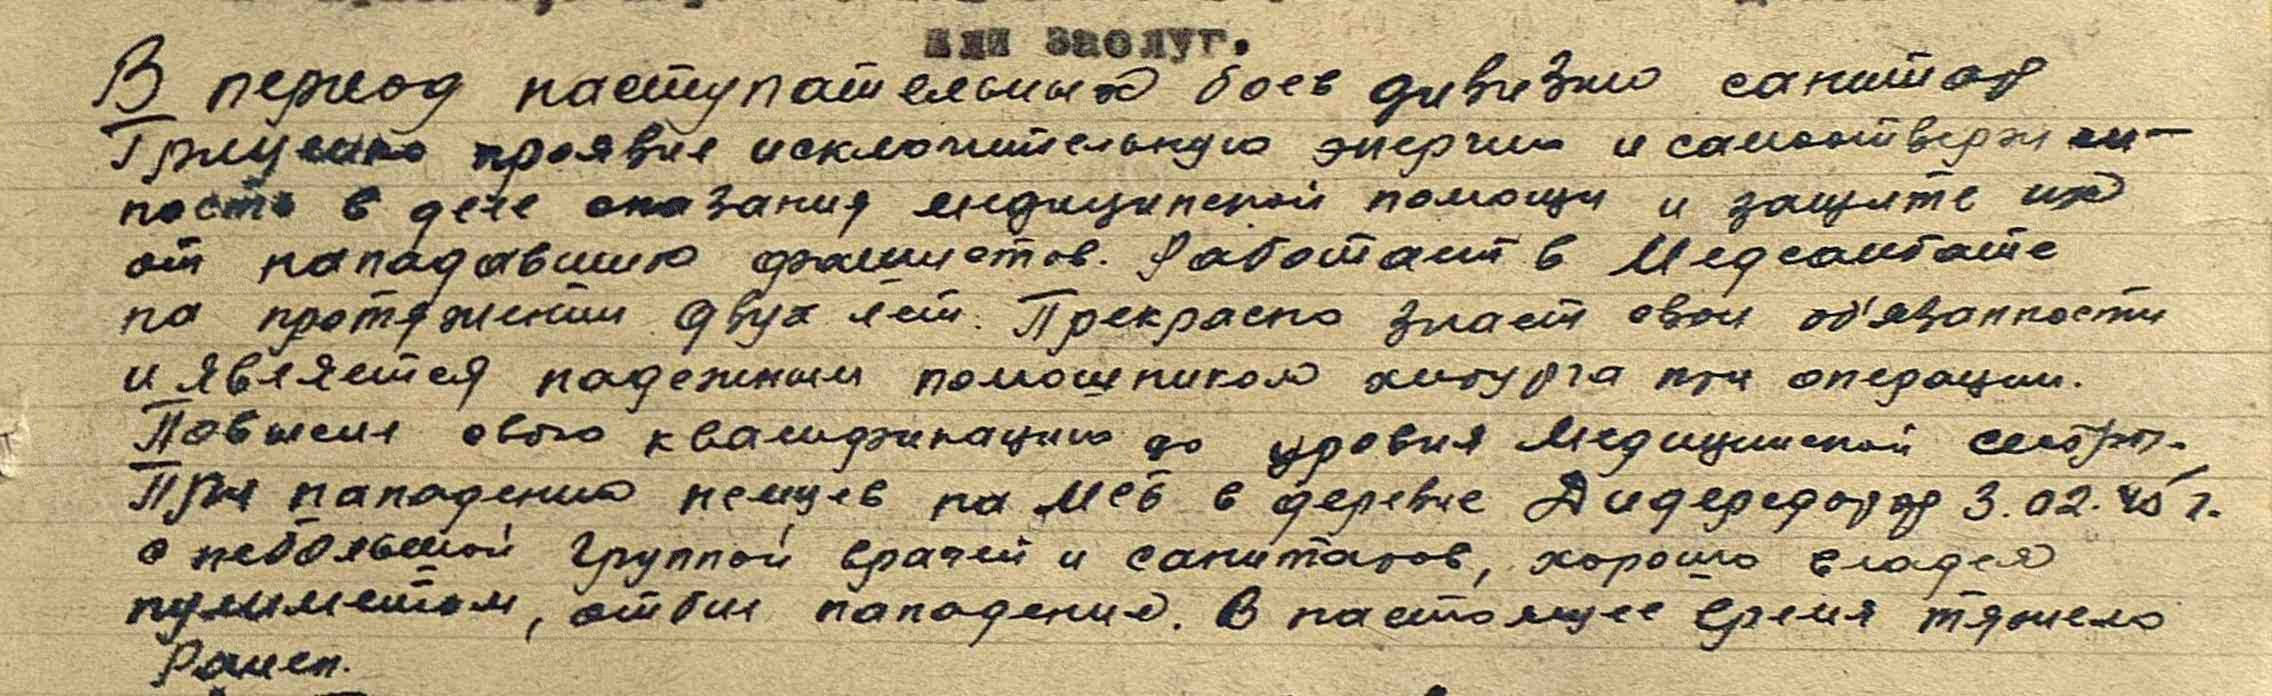 или заслуг.
В период наступательных боев дивизии санитар
Гриценко проявил исключительную энергию и самоотвержен-
ность в деле оказания медицинской помощи и защите их
от нападавших фашистов. Работает в Медсанбате
на протяжении двух лет. Прекрасно знает свои об'язанности
и является надежным помощником хирурга при операции.
Повысил свою квалификацию до уровня медицинской сестры.
При нападении немцев на МСБ в деревне 3.02.45 г.
с небольшой группой врачей и санитаров, хорошо владея
пулеметом, отбил нападение. В настоящее время тяжело
Ранен.